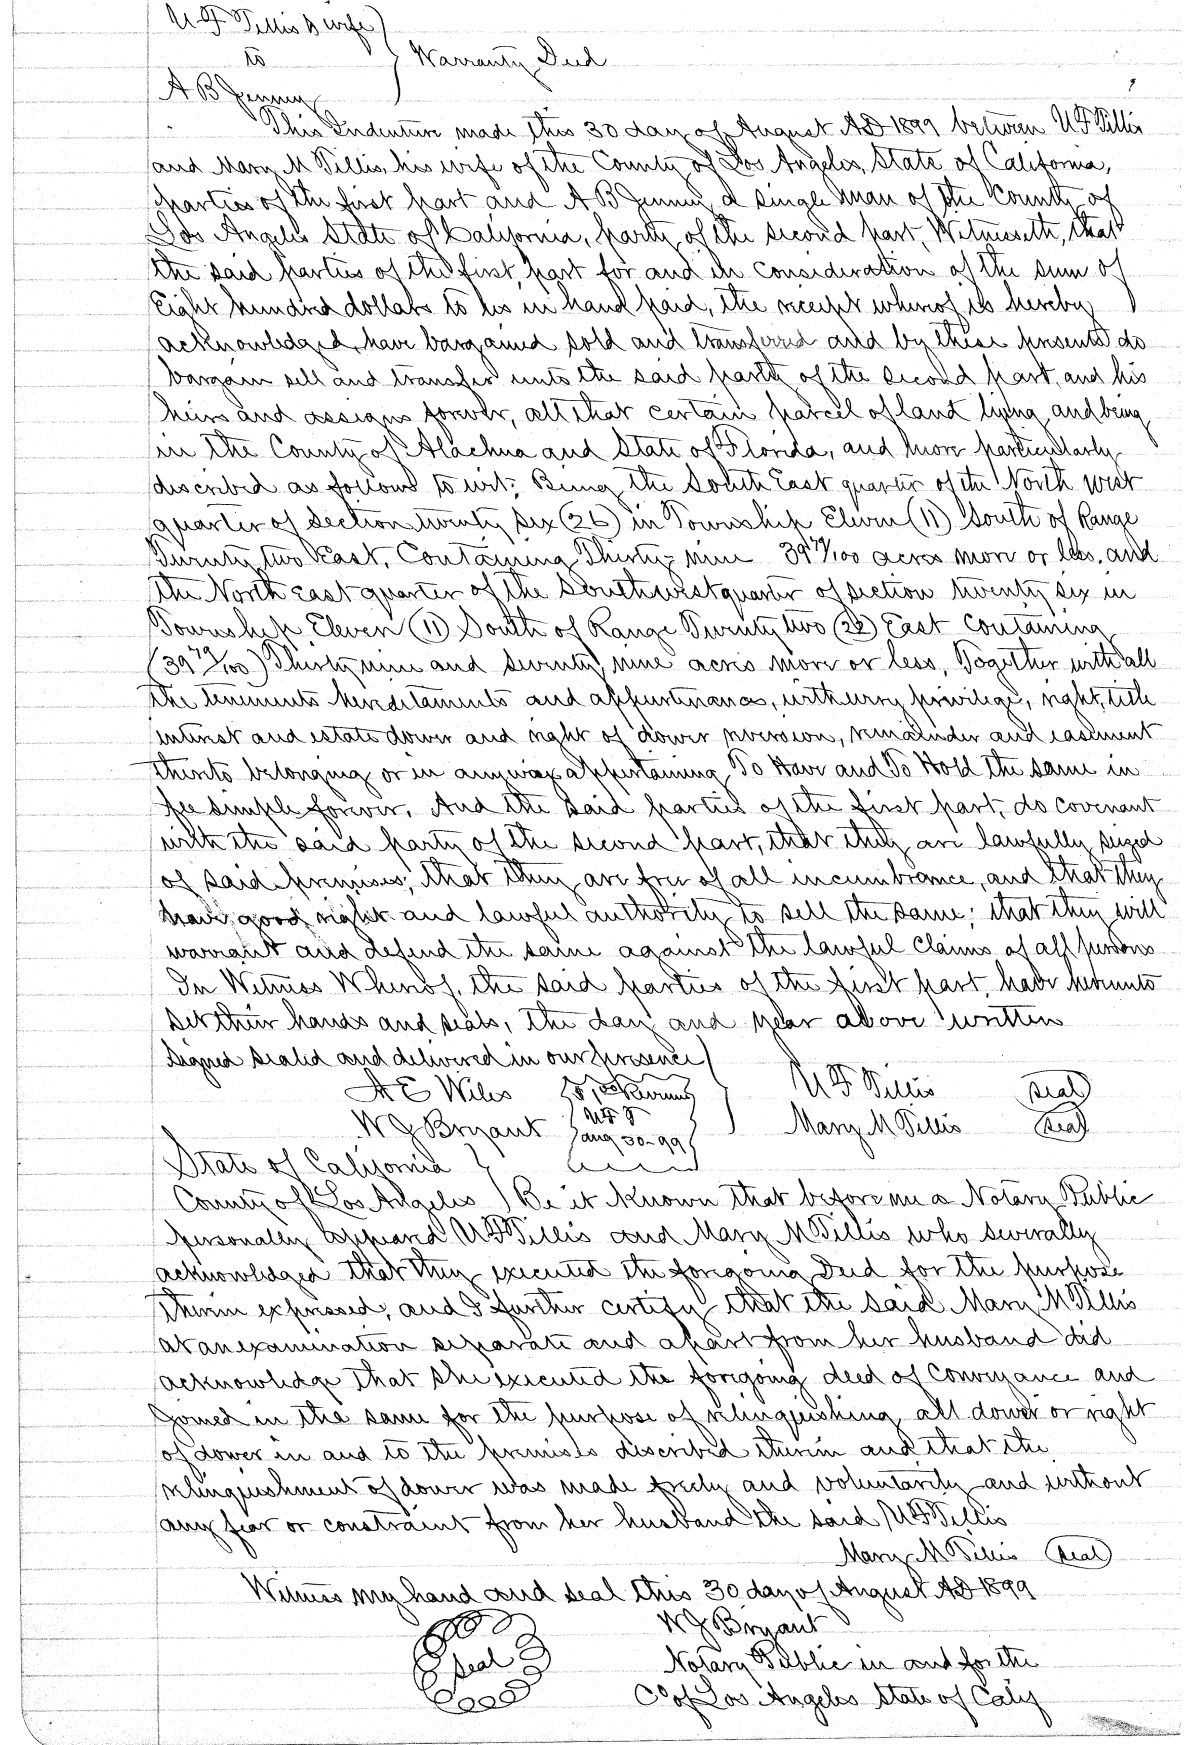 U F Tillis & wife
to
Warranty Deed
A B Jenney
This Indenture made this 30 day of August AD 1899 between U F Tillis
and Mary M Tillis, his wife of the County of Los Angeles, State of California,
parties of the first part and A B Jenney a single man of the County of
Los Angeles State of California, party of the second part, Witnesseth, that
the said parties of the first part for and in consideration of the sum of
Eight hundred dollars to us in hand paid, the receipt whereof is hereby
acknowledged, have bargained sold and transferred and by these presents do
bargain sell and transfer unto the said party of the second part, and his
heirs and assigns forever, all that certain parcel of land lying and being
in the County of Alachua and State of Florida, and more particularly
described as follows to wit: Being the South East quarter of the North west
quarter of Section twenty six (26) in Township Eleven (11) South of Range
Twenty two East, Containing Thirty nine 39 79/100 acres more or less, and
the North East quarter of the Southwest quarter of section twenty six in
Township Eleven (11) South of Range Twenty two (22) East Containing
(39 79/100) Thirty nine and seventy nine acres more or less, Together with all
the tenements hereditaments and appurtenances, with every privilege, right, title
interest and estate dower and right of dower reversion, remainder and easement
thereto belonging or in anyway appertaining To Have and To Hold the same in
fee simple forever, And the said parties of the first part, do covenant
with the said party of the second part, that they are lawfully seized
of said premises, that they are free of all incumbrance, and that they
have good right and lawful authority to sell the same; that they will
warrant and defend the same against the lawful claims of all persons
In Witness Whereof, the said parties of the first part have hereunto
set their hands and seals, the day and year above written
Signed sealed and delivered in our presence
A E Wiles U F Tillis Seal
W J Bryant U F T Aug 30-99 Mary M Tillis Seal
State of California
County of Los Angeles Be it Known that before me a Notary Public
personally appeared U F Tillis and Mary M Tillis who severally
acknowledged that they executed the foregoing Deed for the purpose
therein expressed; and I further certify that the said Mary M Tillis
at an examination separate and apart from her husband did
acknowledge that she executed the foregoing deed of Conveyance and
Joined in the same for the purpose of relinquishing all dower or right
of dower in and to the premises described therein and that the
relinquishment of dower was made freely and voluntarily and without
any fear or constraint from her husband the said U F Tillis
Mary M Tillis Seal
Witness my hand and seal this 30 day of August AD 1899
W J Bryant
Seal Notary Public in and for the
Co of Los Angeles State of Calif